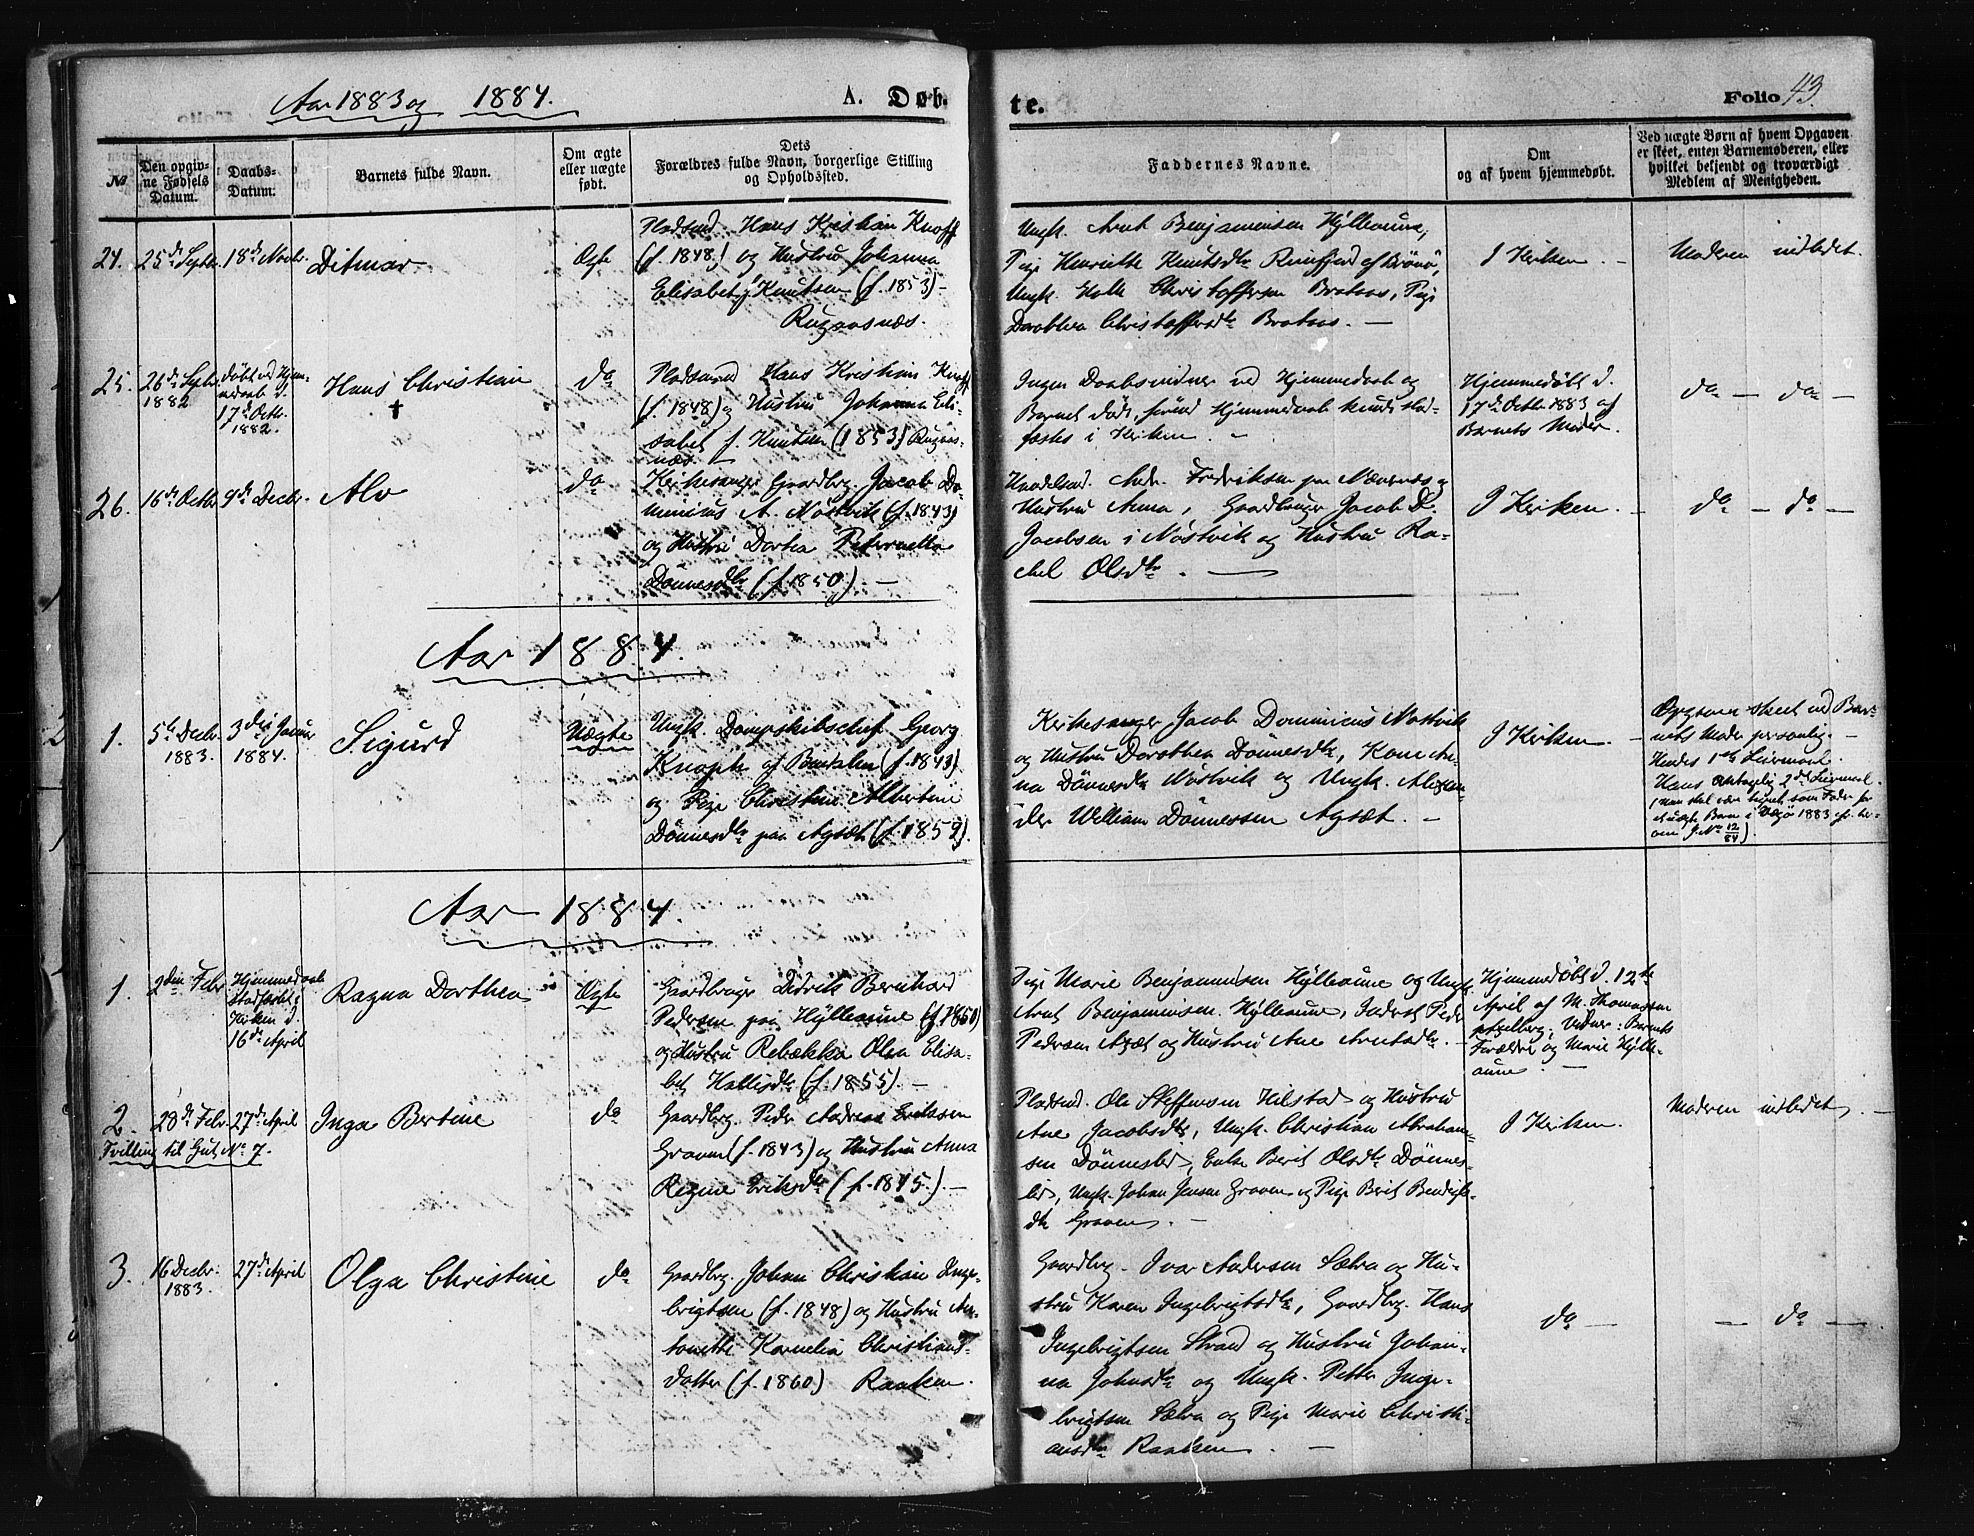 Aar 1883 og 1884.
A. Døb-
te.
Folio 43.
No
Den opgiv-
ne Fødsels
Datum.
Daabs-
Datum.
Barnets fulde Navn.
Om ægte
eller uægte
født.
Dets
Forældres fulde Navn, borgerlige Stilling
og Opholdssted.
Faddernes Navne.
Om
og af hvem hjemmedøbt.
Ved uægte Børn af hvem Opgaven
er skeet, enten Barnemoderen, eller
hvilket bekjendt og troværdigt
Medlem af Menigheden.
24.
25de Septbr.
18de Novbr.
Ditmar
Ægte
Pladsmd. Hans Kristian Knoff
(f. 1848) og Hustru Johanna
Elisabet f. Knutsen (f. 1853) –
Rugaasnæs.
Ungk. Arnt Benjaminsen Hylleaune,
Pige Henriette Knutsdtr
af Brönö,
Ungk. Christoffersen Brataas, Pige
Dorothea Christoffersdtr Brataas. –
I Kirken. –
Moderen indledet.
25.
26de Septbr.
1882
døbt ved Hjem-
medaab d.
17de Octbr.
1882.
Hans Christian
†
do
Pladsmd Hans Kristian Knoff
(f. 1848) og Hustru Johanna Eli-
sabet f. Knutsen (1853) Rugaas-
næs. –
Ingen Daabsvidner ved Hjemmedaab og
Barnet døde, førend Hjemmedaab kunde stad-
fæstes i Kirken. –
Hjemmedøbt d.
17de Octbr. 1883 af
Barnets Moder.
do – do –
26.
16de Octbr.
9de Decbr.
Alv
do
Kirkesanger Gaardbrg. Jacob Do-
minicus A. Nöstvik (f. 1843)
og Hustru Dortea Peternella
Dönnesdtr (f. 1850). –
Handelsmd. Andr. Fredriksen paa Nævernæs og
Hustru Anna, Gaardbruger Jacob D.
Jacobsen i Nöstvik og Hustru Ra-
chel Olsdtr. –
I Kirken. –
do – do –
Aar 1884.
1.
5te Decbr.
1883.
3die Januar
1884.
Sigurd
Uægte
Ungk. Dampskibschef Georg
Knoph af Bindalen (f. 1843)
og Pige Christine Albertine
Dönnesdtr paa Agsæt (f. 1859).
Kirkesanger Jacob Dominicus Nöstvik
og Hustru Dorothea Dönnesdtr, Kone An-
na Dönnesdtr Nöstvik og Ungk. Alexan-
der William Dönnessen Agsæt. –
I Kirken. –
Opgaven skeet ved Bar-
nets Moder personlig. –
Hendes 1ste Leiermaal.
Hans antagelig 2det Leiermaal.
(Han skal være som Fader for
et uægte Barn i Vegö 1883 cfr. her-
om J No 12/84)
Aar 1884.
1.
2den Febr
Hjemmedaab
stadfæstet i
Kirken d.
16de April
Ragna Dorthea
Ægte
Gaardbruger Didrik Bernhard
Pedersen paa Hylleaune (f. 1860)
og Hustru Rebekka Olea Elisa-
bet Hallisdtr (f. 1855). –
Pige Marie Benjaminsen Hylleaune og Ungk.
Arnt Benjaminsen Hylleaune, Peder
Pedersen Agsæt og Hustru Ane Arntsdtr. –
Hjemmedøbt d. 12te
April af M. Thomassen
Vidner: Barnets
Forældre og Marie Hylle-
aune –
2.
Tvilling til Gut No 7.
28de Febr.
27de April
Inga Bertine
do
Gaardbrg. Peder Andreas Eriksen
Graven (f. 1843) og Hustru Anna
Regine Eriksdtr (f. 1845.) –
Pladsmd. Ole Steffensen Hilstad og Hustru
Ane Jacobsdtr, Ungk. Christian Abraham-
sen Dönneslid, Enke Berit Olsdtr Dönnes-
lid, Ungk. Johan Jensen Graven og Pige Berit
dtr Graven. –
I Kirken.
Moderen indledet. –
3.
16 Decbr.
1883.
27de April
Olga Christine
do
Gaardbrg. Johan Christian Inge-
brigtsen (f. 1848) og Hustru An-
tonette Kornelia Christians-
datter (f. 1860) Raaken.
Gaardbrg. Ivar Andersen Sætra og Hu-
stru Karen Ingebrigtsdtr, Gaardbrg. Hans
Ingebrigtsen Strand og Hustru Johan-
na Johnsdtr og Ungk. Petter Inge-
brigtsen Sætra og Pige Marie Christi-
ansdtr Raaken. –
do –
– do –